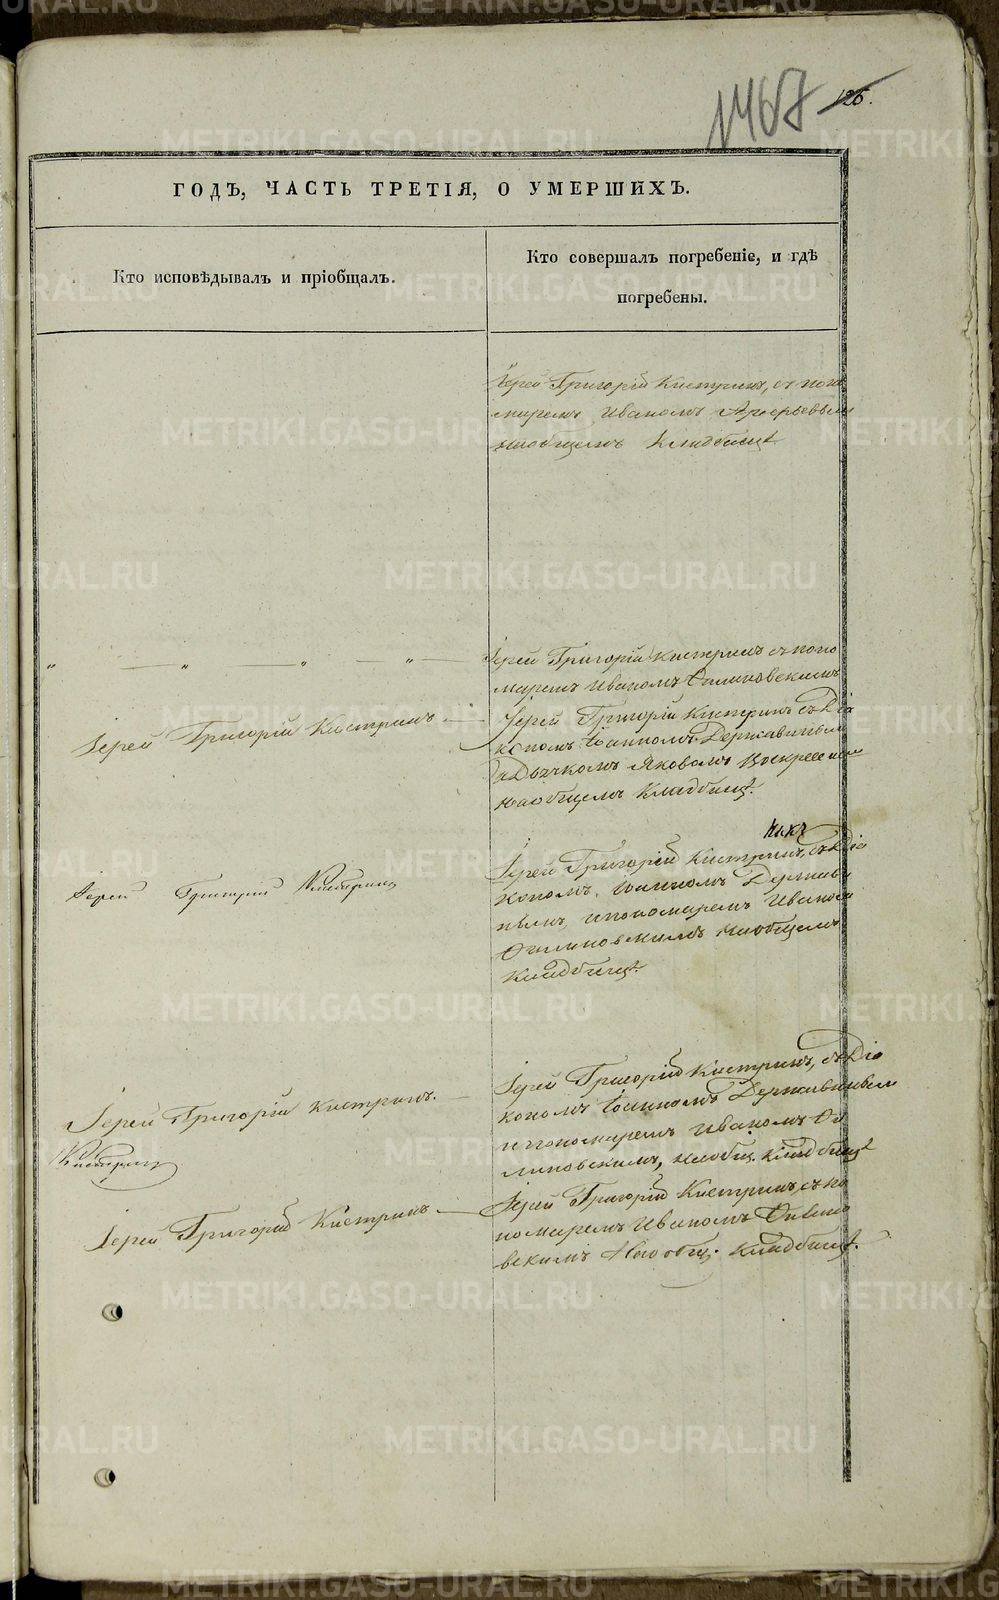 1467 126.
ГОДЪ, ЧАСТЬ ТРЕТІЯ, О УМЕРШИХЪ.
Кто исповѣдывалъ и пріобщалъ.
Кто совершалъ погребеніе, и гдѣ
погребены.
Іерей Григорій Кистринъ, съ поно
маремъ Иваномъ
наобщемъ Кладбищѣ
" — " — " — " —
Іерей Григорій Кистринъ съ поно
маремъ Иваномъ
Іерей Григорій Кистринъ —
Іерей Григорій Кистринъ съ Діа
кономъ Іоанномъ Державинымъ
и Дьячкомъ Яковомъ
наобщемъ Кладбищѣ.
Іерей Григорій Кистринъ
Іерей Григорій Кистринъ, съ Діа
кономъ Іоанномъ Держави
нымъ, и пономаремъ Иваномъ
наобщемъ
Кладбищѣ.
Іерей Григорій Кистринъ. —
Кистринъ
Іерей Григорій Кистринъ, съ Діа
кономъ Іоанномъ Державинымъ
и пономаремъ Иваномъ
наобщ. Кладбищѣ
Іерей Григорій Кистринъ —
Іерей Григорій Кистринъ, съ по
номаремъ Иваномъ
вскимъ На общ. Кладбищѣ.
METRIKI.GASO-URAL.RU